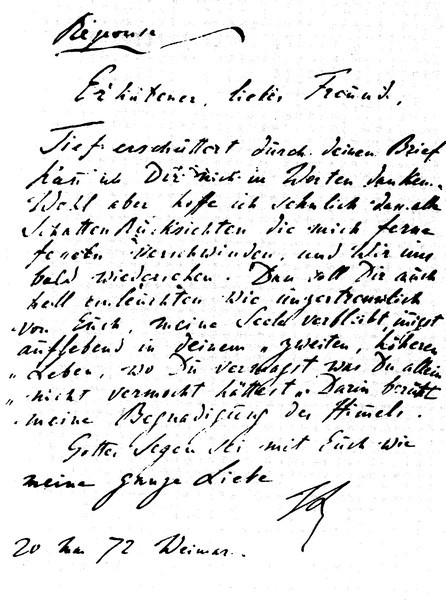 Réponse
Erhabener, lieber Freund,
Tief erschüttert durch deinen Brief
kan ich Dir nicht in Worten danken.
Wohl aber hoffe ich sehnlich dass alle
Schatten Rücksichten die mich ferne
verschwinden, und Wir uns
bald wiedersehen. Dan soll Dir auch
hell einleuchten wie ungetrennlich
von Euch, meine Seele verbleibt
auflebend in deinem „zweiten, höheren
„Leben, wo Du vermagst was Du allein
„nicht vermocht hättest". Darin beruht
meine Begnadigung des Himels.
Gottes Segen sei mit Euch wie
meine ganze Liebe
20 Mai 72 Weimar.